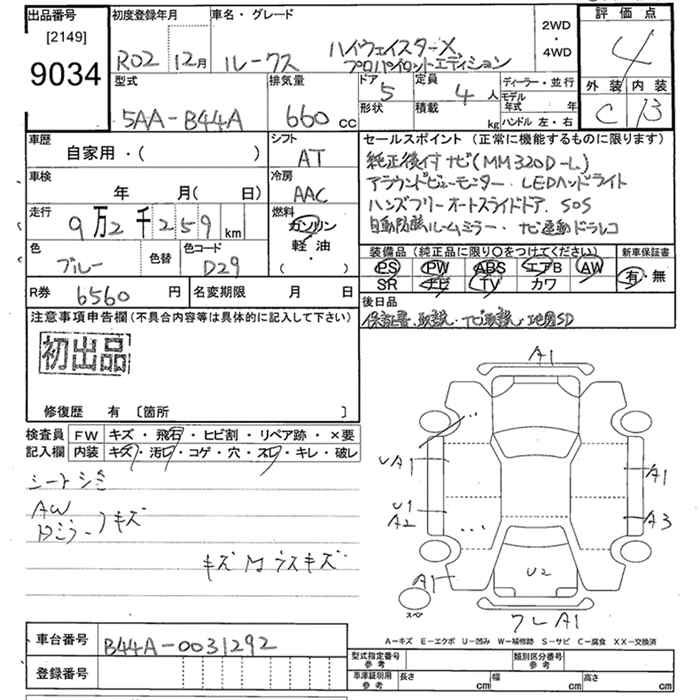 出品番号
[2149]
9034
初度登録年月
R02 12月
車名・グレード
ルークス ハイウェイスターX
プロパイロットエディション
2WD
・
4WD
評価点
4
外装 内装
C B
型式
5AA-B44A
排気量
660 cc
ドア
5
形状
定員
4 人
積載
kg
ディーラー・並行
モデル
年式 年
ハンドル 左・右
車歴
自家用・( )
シフト
AT
車検
年 月( 日)
冷房
AAC
走行
9万2千259 km
燃料
ガソリン
軽油
( ・ )
色
ブルー
色替
色コード
D29
R券 6560 円
名変期限 月 日
セールスポイント(正常に機能するものに限ります)
純正後付ナビ(MM320D-L)
アラウンドビューモニター・LEDヘッドライト
ハンズフリーオートスライドドア.SOS
自動防眩ルームミラー・ナビ連動ドラレコ
装備品(純正品に限り○をつけてください)
PS PW ABS エアB AW
SR ナビ TV カワ
新車保証書
有・無
後日品
保証書.取説・ナビ取説・地図SD
注意事項申告欄(不具合内容等は具体的に記入して下さい)
初出品
修復歴 有 〔箇所 〕
検査員
記入欄
FW キズ・飛石・ヒビ割・リペア跡・×要
内装 キズ・汚レ・コゲ・穴・スレ・キレ・破レ
シートシミ
AW
Dミラー キズ
キズ M ラスキズ
A1
UA1
A1
U1
A2
A3
A1
U2
スペア
フレA1
A−キズ E−エクボ U−凹み W−補修跡 S−サビ C−腐食 XX−交換済
車台番号
B44A-0031292
登録番号
型式指定番号
参考
類別区分番号
参考
車庫証明用
参考
長さ cm
幅 cm
高さ cm